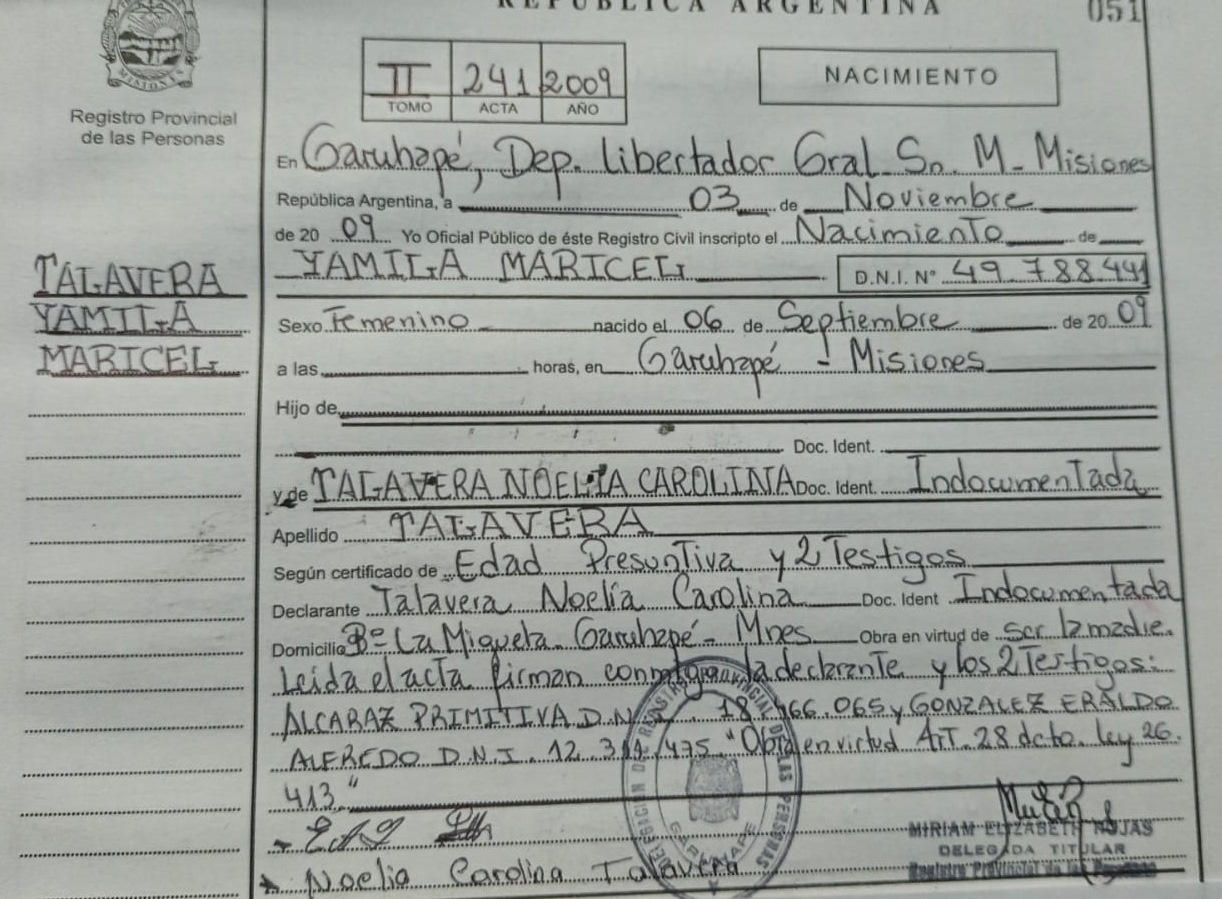 REPÚBLICA ARGENTINA
051
MISIONES
Registro Provincial
de las Personas
II 241 2009
TOMO ACTA AÑO
NACIMIENTO
En Garuhapé, Dep. Libertador Gral. Sn. M - Misiones
República Argentina, a 03 de Noviembre
de 20 09 Yo Oficial Público de éste Registro Civil inscripto el Nacimiento de
YAMILA MARICEL D.N.I. Nº 49 788 441
TALAVERA
YAMILA
MARICEL
Sexo Femenino nacido el 06 de Septiembre de 20 09
a las horas, en Garuhapé - Misiones
Hijo de
Doc. Ident.
y de TALAVERA NOELIA CAROLINA Doc. Ident. Indocumentada
Apellido TALAVERA
Según certificado de Edad Presuntiva y 2 Testigos
Declarante Talavera Noelia Carolina Doc. Ident Indocumentada
Domicilio Bº La Migueta. Garuhapé - Mnes Obra en virtud de ser la madre.
Leida el acta firman conmigo la declarante y los 2 Testigos:
ALCARAZ PRIMITIVA D.N.I. 18.966.065 y GONZALEZ ERALDO
ALFREDO D.N.I. 12.311.475. "Obra en virtud ArT. 28 dcto. ley 26.
413"
Noelia Carolina Talavera
DELEGACION DE REGISTRO PROVINCIAL DE LAS PERSONAS
GARUHAPE
MIRIAM ELIZABETH ROJAS
DELEGADA TITULAR
Registro Provincial de las Personas